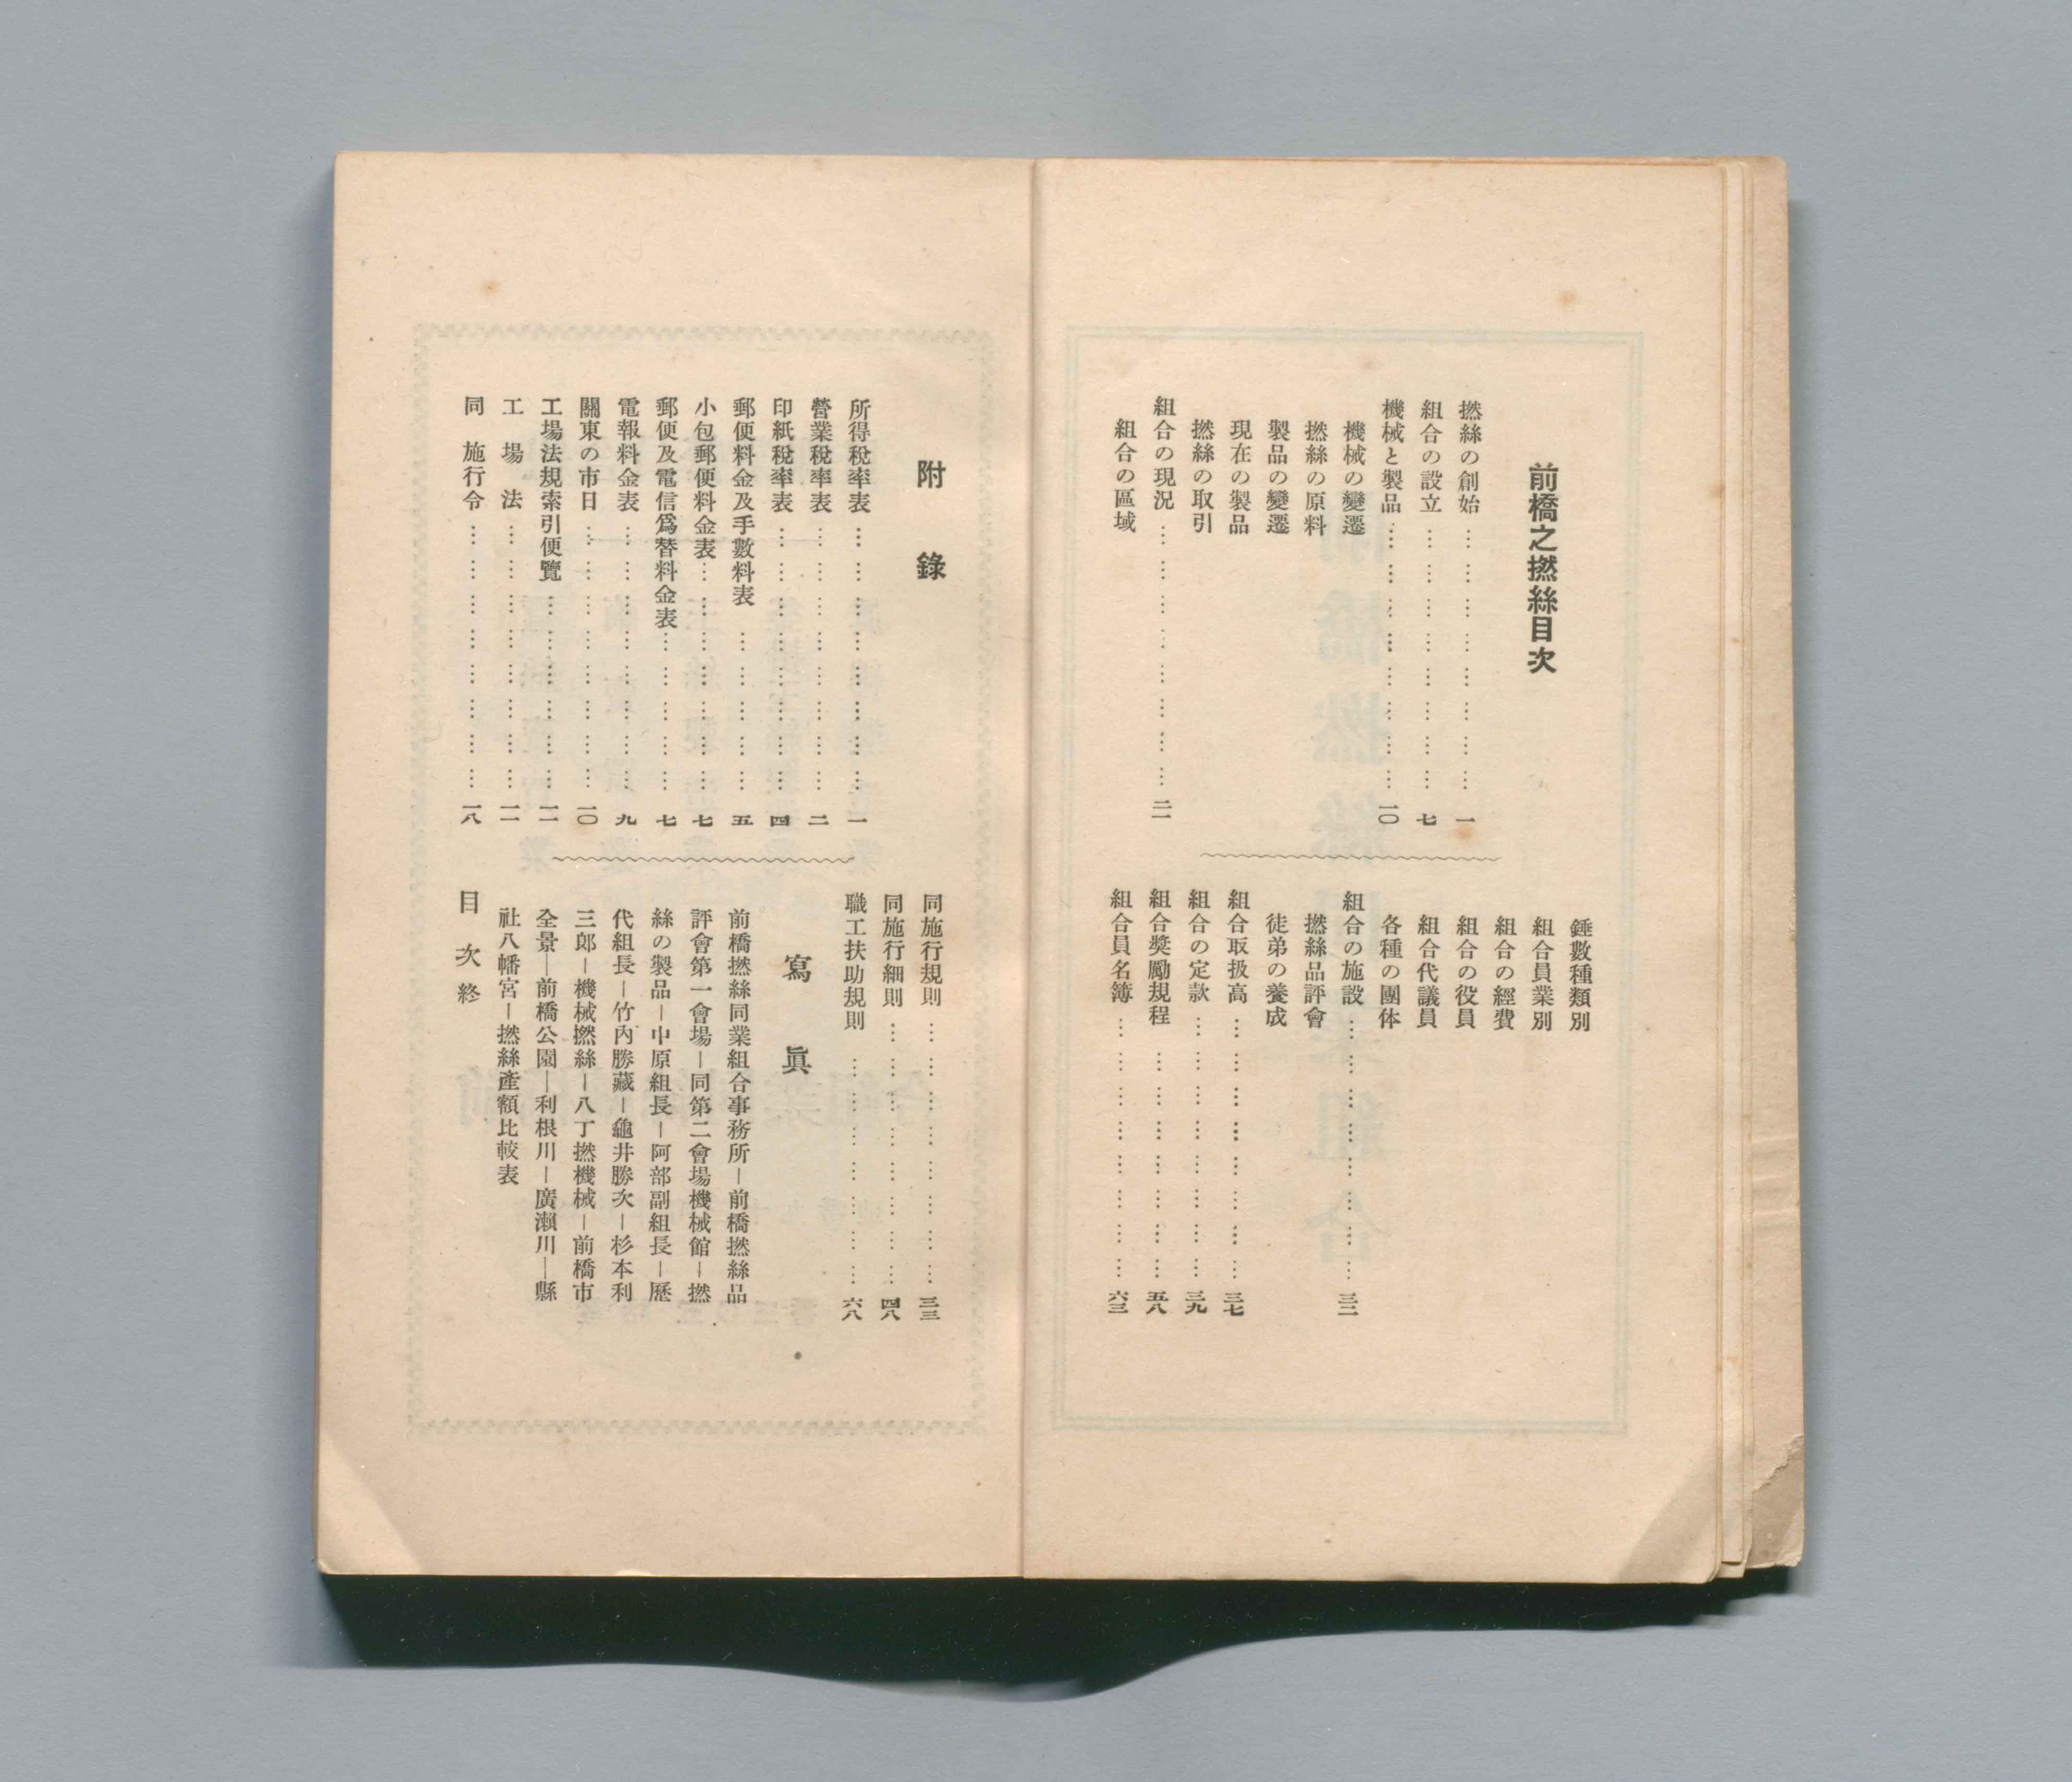 前橋之撚絲目次
撚絲の創始………………………一
組合の設立………………………七
機械と製品………………………一〇
機械の變遷
撚絲の原料
製品の變遷
現在の製品
撚絲の取引
組合の現況………………………二一
組合の區域
錘數種類別
組合員業別
組合の經費
組合の役員
組合代議員
各種の團体
組合の施設………………………三二
撚絲品評會
徒弟の養成
組合取扱高………………………三七
組合の定款………………………三九
組合奬勵規程………………………五八
組合員名簿………………………六三
附錄
所得稅率表………………………一
營業稅率表………………………二
印紙稅率表………………………四
郵便料金及手數料表………………五
小包郵便料金表……………………七
郵便及電信爲替料金表……………七
電報料金表………………………九
關東の市日………………………一〇
工場法規索引便覽………………一一
工場法………………………一一
同施行令………………………一八
同施行規則………………………三三
同施行細則………………………四八
職工扶助規則………………………六八
寫眞
前橋撚絲同業組合事務所―前橋撚絲品
評會第一會場―同第二會場機械館―撚
絲の製品―中原組長―阿部副組長―歷
代組長―竹內勝藏―龜井勝次―杉本利
三郎―機械撚絲―八丁撚機械―前橋市
全景―前橋公園―利根川―廣瀨川―縣
社八幡宮―撚絲產額比較表
目次終